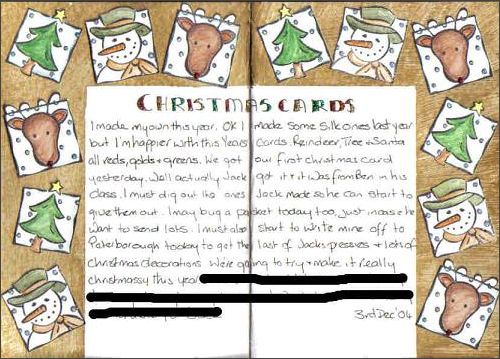 CHRISTMAS CARDS
I made my own this year. OK I made some silk ones last year
but I'm happier with this years cards. Reindeer, Tree + Santa
all reds, golds + greens. We got our first christmas card
yesterday. Well actually Jack got it + it was from Ben in his
class. I must dig out the ones Jack made so he can start to
give them out. I may buy a packet today too, just incase he
want to send lots. I must also start to write mine off to
Peterborough today to get the last of Jacks pressies + lots of
christmas decorations. We're going to try + make it really
christmassy this year
3rd Dec '04